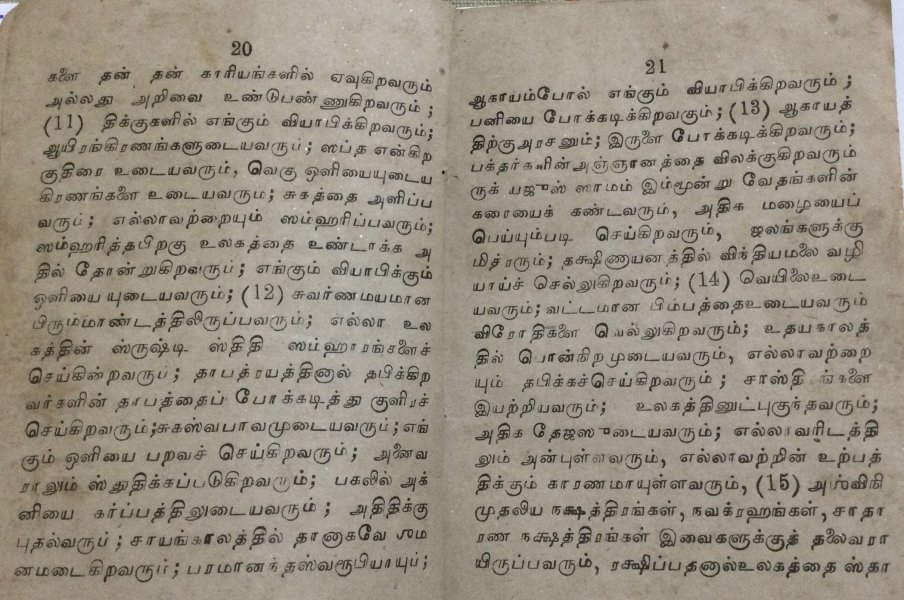 20
களை தன் தன் காரியங்களில் ஏவுகிறவரும்
அல்லது அறிவை உண்டுபண்ணுகிறவரும் ;
(11) திக்குகளில் எங்கும் வியாபிக்கிறவரும்;
ஆயிரங்கிரணங்களுடையவரும்; ஸப்த என்கிற
குதிரை உடையவரும், வெகு ஒளியையுடைய
கிரணங்களை உடையவரும்; சுகத்தை அளிப்ப
வரும்; எல்லாவற்றையும் ஸம்ஹரிப்பவரும்;
ஸம்ஹரித்தபிறகு உலகத்தை உண்டாக்க அ
தில் தோன்றுகிறவரும்; எங்கும் வியாபிக்கும்
ஒளியை யுடையவரும்; (12) சுவர்ணமயமான
பிரும்மாண்டத்திலிருப்பவரும்; எல்லா உல
கத்தின் ஸ்ருஷ்டி ஸ்திதி ஸம்ஹாரங்களைச்
செய்கின்றவரும்; தாபத்ரயத்தினால் தபிக்கிற
வர்களின் தாபத்தைப் போக்கடித்து குளிரச்
செய்கிறவரும்;சுகஸ்வபாவமுடையவரும்; எங்
கும் ஒளியை பறவச் செய்கிறவரும்; அனைவ
ராலும் ஸ்துதிக்கப்படுகிறவரும்; பகலில் அக்
னியை கர்ப்பத்திலுடையவரும்; அதிதிக்கு
புதல்வரும்; சாயங்காலத்தில் தானாகவே ஶம
னமடைகிறவரும்; பரமானந்தஸ்வரூபியாயும்;
21
ஆகாயம்போல் எங்கும் வியாபிக்கிறவரும் ;
பனியை போக்கடிக்கிறவகும்; (13) ஆகாயத்
திற்குஅரசனும்; இருளை போக்கடிக்கிறவரும்;
பக்தர்களின்அஞ்ஞானத்தை விலக்குகிறவரும்
ருக் யஜுஸ் ஸாமம் இம்மூன்று வேதங்களின்
கரையைக் கண்டவரும், அதிக மழையைப்
பெய்யும்படி செய்கிறவரும், ஜலங்களுக்கு
மித்ரரும்; தக்ஷிணாயனத்தில் விந்தியமலை வழி
யாய்ச் செல்லுகிறவரும்; (14) வெயிலைஉடை
யவரும்; வட்டமான பிம்பத்தைஉடையவரும்
விரோதிகளை வெல்லுகிறவரும்; உதயகாலத்
தில் பொன்நிறமுடையவரும், எல்லாவற்றை
யும் தபிக்கச்செய்கிறவரும் ; சாஸ்திரங்களை
இயற்றியவரும்; உலகத்தினுட்புகுந்தவரும்;
அதிக தேஜஸுடையவரும்; எல்லாவரிடத்தி
லும் அன்புள்ளவரும், எல்லாவற்றின் உற்பத்
திக்கும் காரணமாயுள்ளவரும், (15) அஶ்விநி
முதலிய நக்ஷத்திரங்கள், நவக்ரஹங்கள், சாதா
ரண நக்ஷத்திரங்கள் இவைகளுக்குத் தலைவரா
யிருப்பவரும், ரக்ஷிப்பதனால்உலகத்தை ஸ்தா